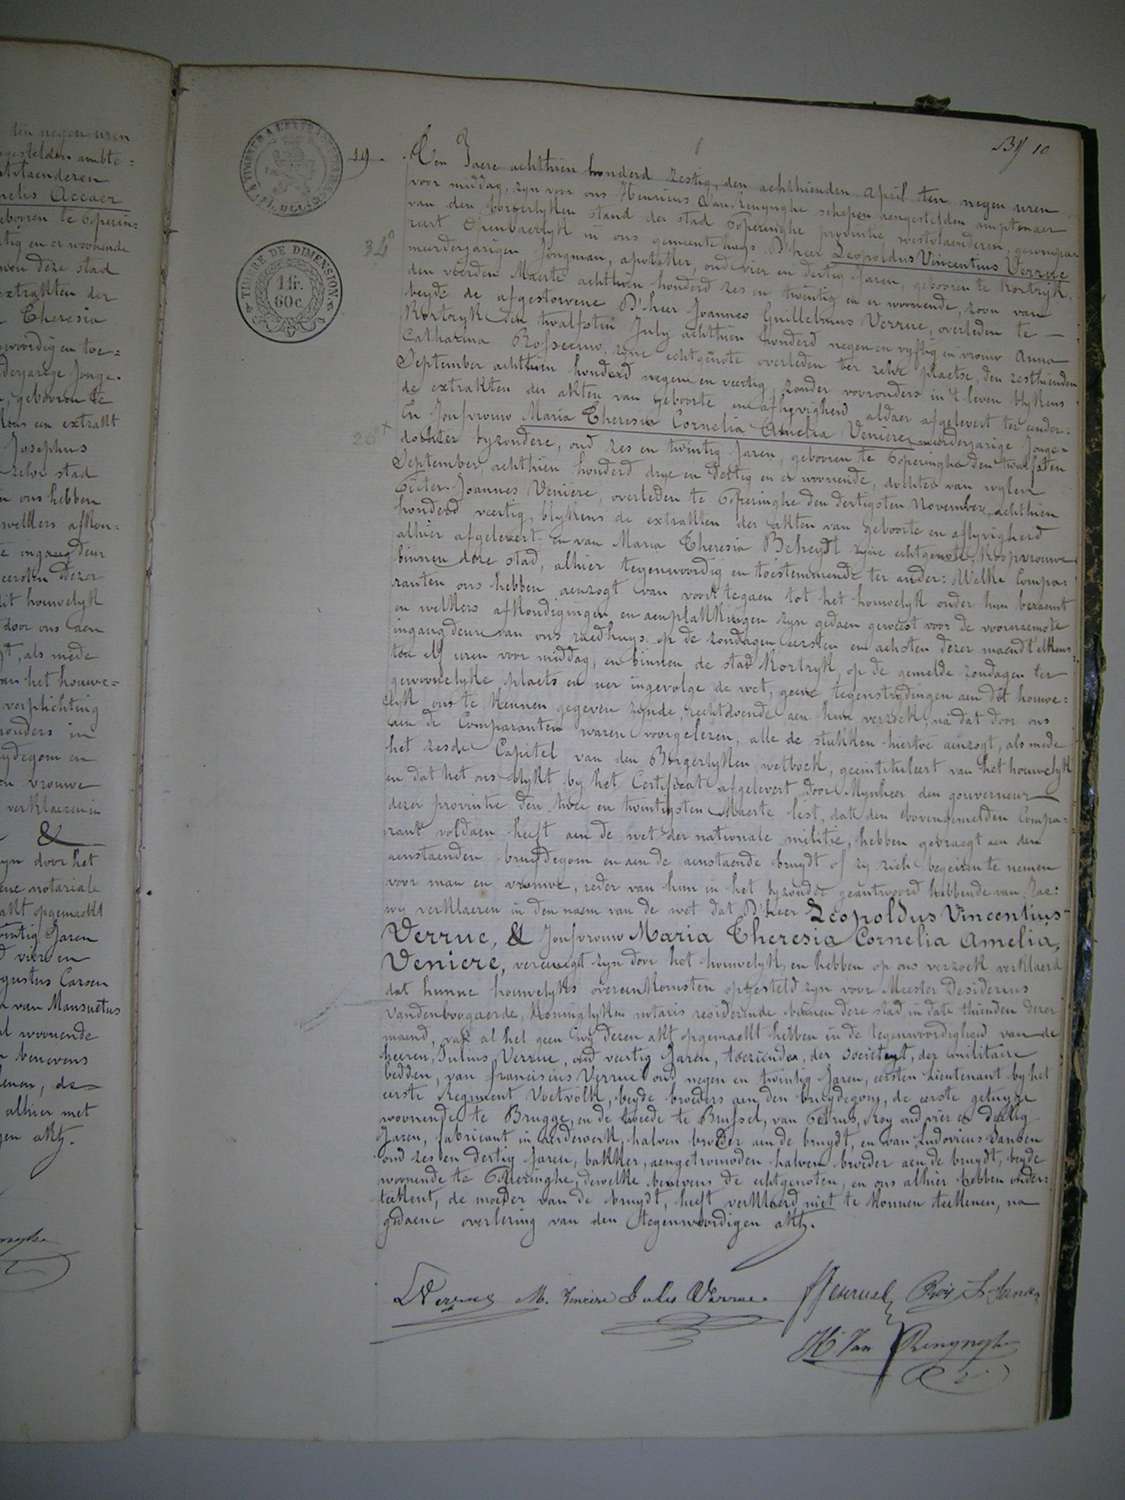 BN 10
19.
Den Jaere achthien honderd zestig, den achthienden April ten negen uren
voor middag, zyn voor ons Henricus Van Renynghe schepen aengestelden amptenaer
van den borgerlyken stand der stad Poperinghe provintie westvlaenderen, gecompa-
reert Openbaerlyk in ons gemeentehuys D'heer Leopoldus Vincentius Verrue
34°
meerderjarigen Jongman, apotheker, oud vier en dertig Jaren, gebooren te Kortryk
den vierden Maerte achthien honderd zes en twintig en er woonende, zoon van
beyde de afgestorvene D'heer Joannes Guillelmus Verrue, overleden te
Kortryk den twalfsten July achthien honderd negen en vyftig en vrouw Anna
Catharina Rosseeuw, zyne echtgenote overleden ter zelve plaetse, den zesthienden
September achthien honderd negen en veertig, zonder voorouders in 't leven blykens
de extrakten der akten van Geboorte en aflyvigheid aldaer afgelevert ter eender
En Jonfvrouw Maria Theresia Cornelia Amelia Veniere, meerderjarige Jonge-
26
dochter byzondere, oud zes en twintig Jaren, gebooren te Poperinghe den twalfsten
September achthien honderd drye en dertig en er woonende, dochter van wylen
Pieter Joannes Veniere, overleden te Poperinghe den dertigsten November achthien
honderd veertig, blykens de extrakten der akten van Geboorte en aflyvigheid
alhier afgelevert en van Maria Theresia Beheydt zyne echtgenote, Koopvrouwe
binnen deze stad, alhier tegenwoordig en toestemmende ter ander: Welke Compa-
ranten ons hebben aenzogt van voort te gaen tot het houwelyk onder hun beraemt
en welkers afkondigingen en aenplakkingen zyn gedaen geweest voor de voornaemste
ingangdeure van ons raedhuys op de zondagen eersten en achsten dezer maend t'elkens
ten elf uren voor middag, en binnen de stad Kortryk, op de gemelde zondagen ter
gewoonelyke plaets en uer ingevolge de wet, geene tegenstrydingen aen dit houwe-
lyk ons te kennen gegeven zynde, rechtdoende aen hun verzoek, na dat door ons
aen de Comparanten waren voorgelezen, alle de stukken hiertoe aenzogt, als mede
het zesde Capitel van den Borgerlyken wetboek, geïntituleert van het houwelyk
en dat het ons blykt by het Certificaet afgelevert door Mynheer den gouverneur
dezer provintie den twee en twintigsten Maerte lest, dat den bovengemelden Compa-
rant voldaen heeft aen de wet der nationale militie, hebben gevraegt aen den
aenstaenden bruydegom en aen de aenstaende bruydt of zy zich begeiren te nemen
voor man en vrouwe, ieder van hun in het byzonder geantwoord hebbende van Jae:
wy verklaeren in den naem van de wet dat D'heer Leopoldus Vincentius
Verrue, & Jonfvrouw Maria Theresia Cornelia Amelia,
Veniere, vereenigt zyn door het houwelyk, en hebben op ons verzoek verklaerd
dat hunne houwelyks overeenkomsten opgesteld zyn voor Meester Desiderius
Vandenboogaerde, Koninglyken notaris residerende binnen deze stad in date thienden dezer
maend, van al het geen Wy dezen akt opgemaekt hebben in de tegenwoordigheid van de
heeren Julius Verrue, oud veertig Jaren, toeziender, der societeyt, der militaire
bedden, van Franciscus Verrue oud negen en twintig Jaren, eersten Lieutenant by het
eerste Regiment Voetvolk, beyde broeders aen den bruydegom, de eerste getuyge
woonende te Brugge, en de tweede te Brussel, van Petrus Roy oud vier en dertig
Jaren, fabricant in aerdewerk, halven broeder aen de bruydt, en van Ludovicus Sansen
oud zes en dertig Jaren, bakker, aengetrouwden halven broeder aen de bruydt, beyde
woonende te Poperinghe, dewelke benevens de echtgenoten, en ons alhier hebben onder-
teekent, de moeder van de bruydt, heeft verklaerd niet te konnen teekenen, na
gedaene overlezing van den tegenwoordigen akt.
LVerrue M. Veniere Jules Verrue. FVerrue Roy L. Sansen
H Van Renynghe
TIMBRE DE DIMENSION
1 fr.
60 c.